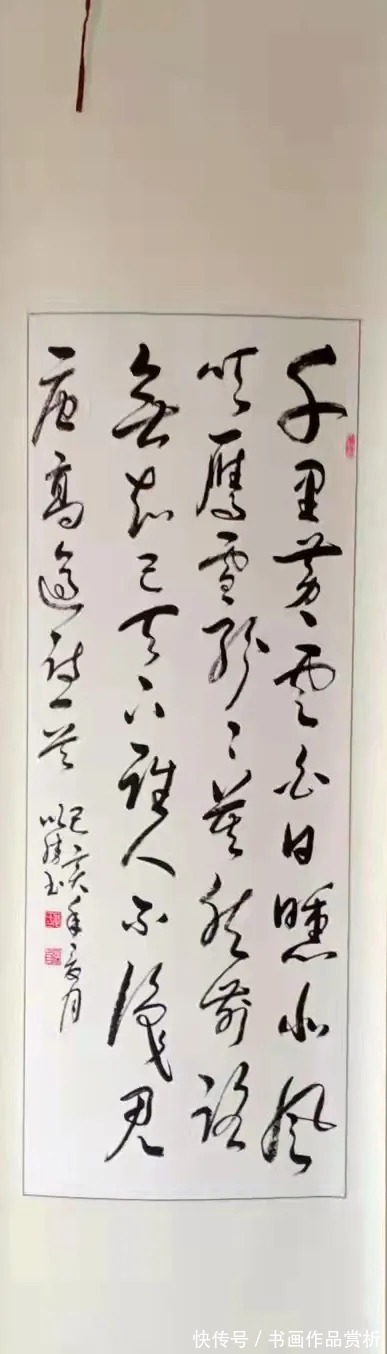 千里黄雲白日曛北風
吹雁雪紛紛莫愁前路
無知己天下誰人不識君
唐高適詩一首
己亥年夏月
快传号 / 书画作品赏析